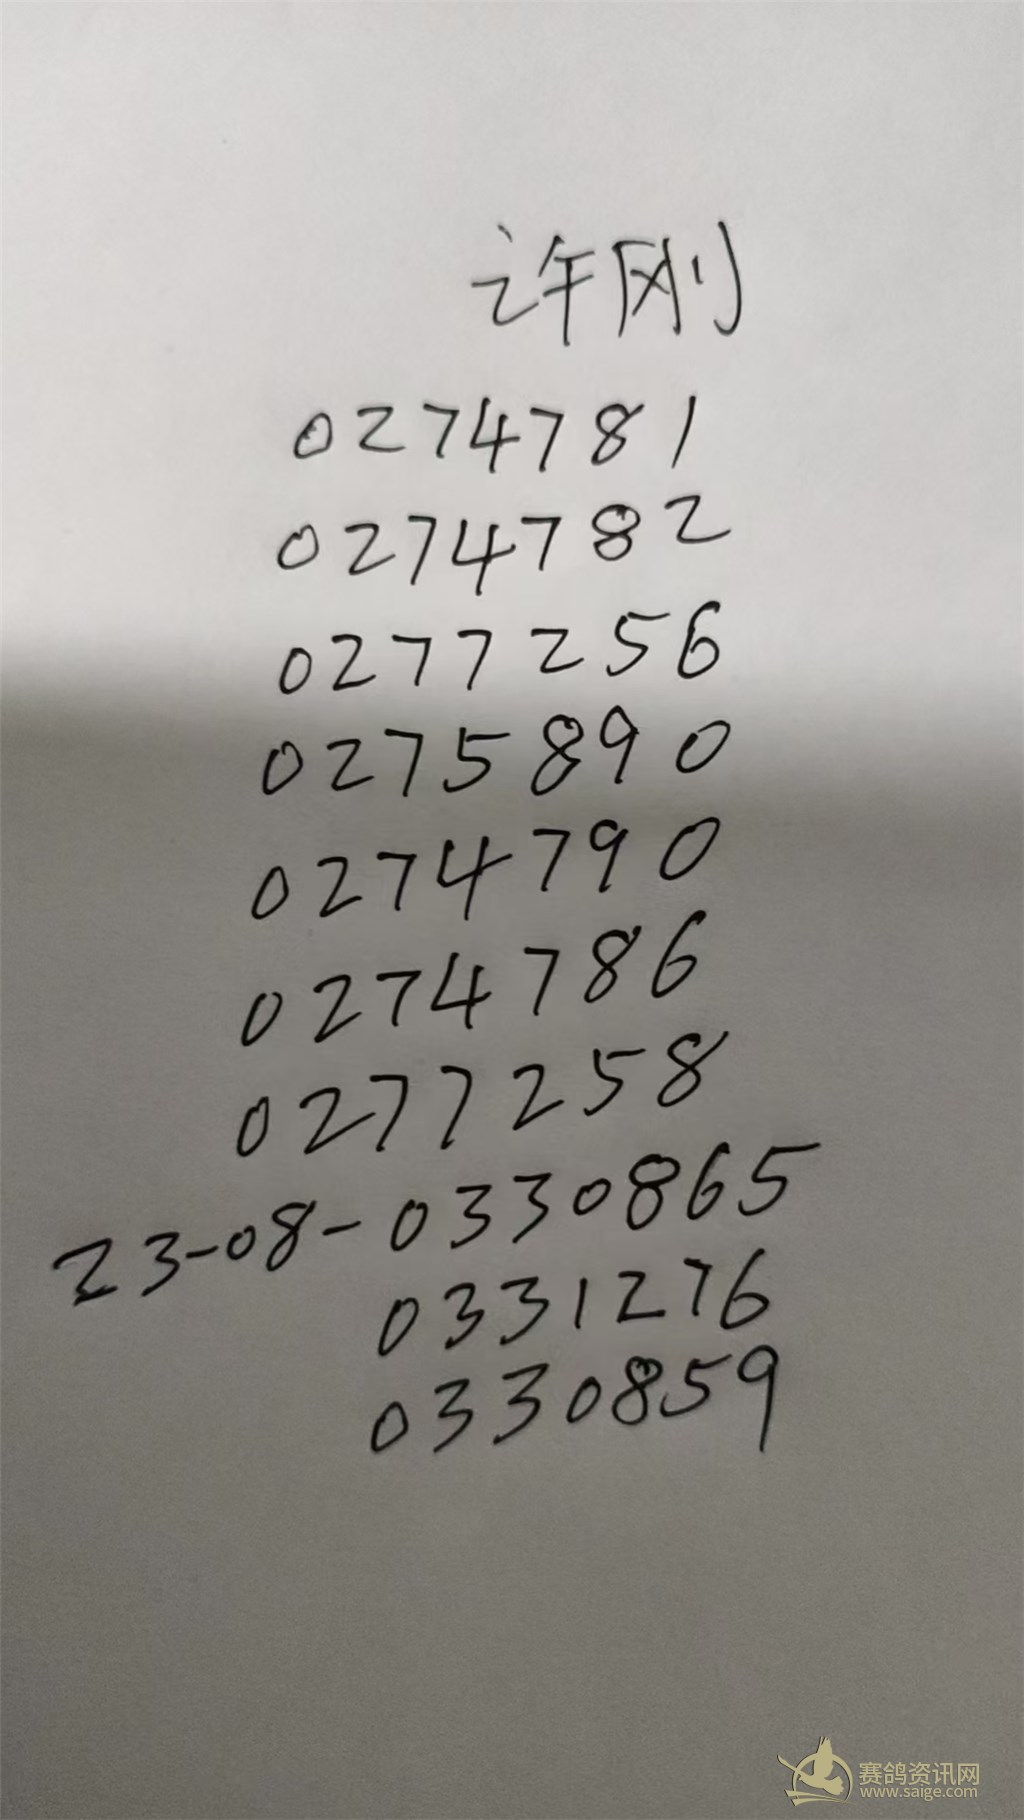 许刚
0274781
0274782
0277256
0275890
0274790
0274786
0277258
23-08-0330865
0331276
0330859
赛鸽资讯网
www.saige.com